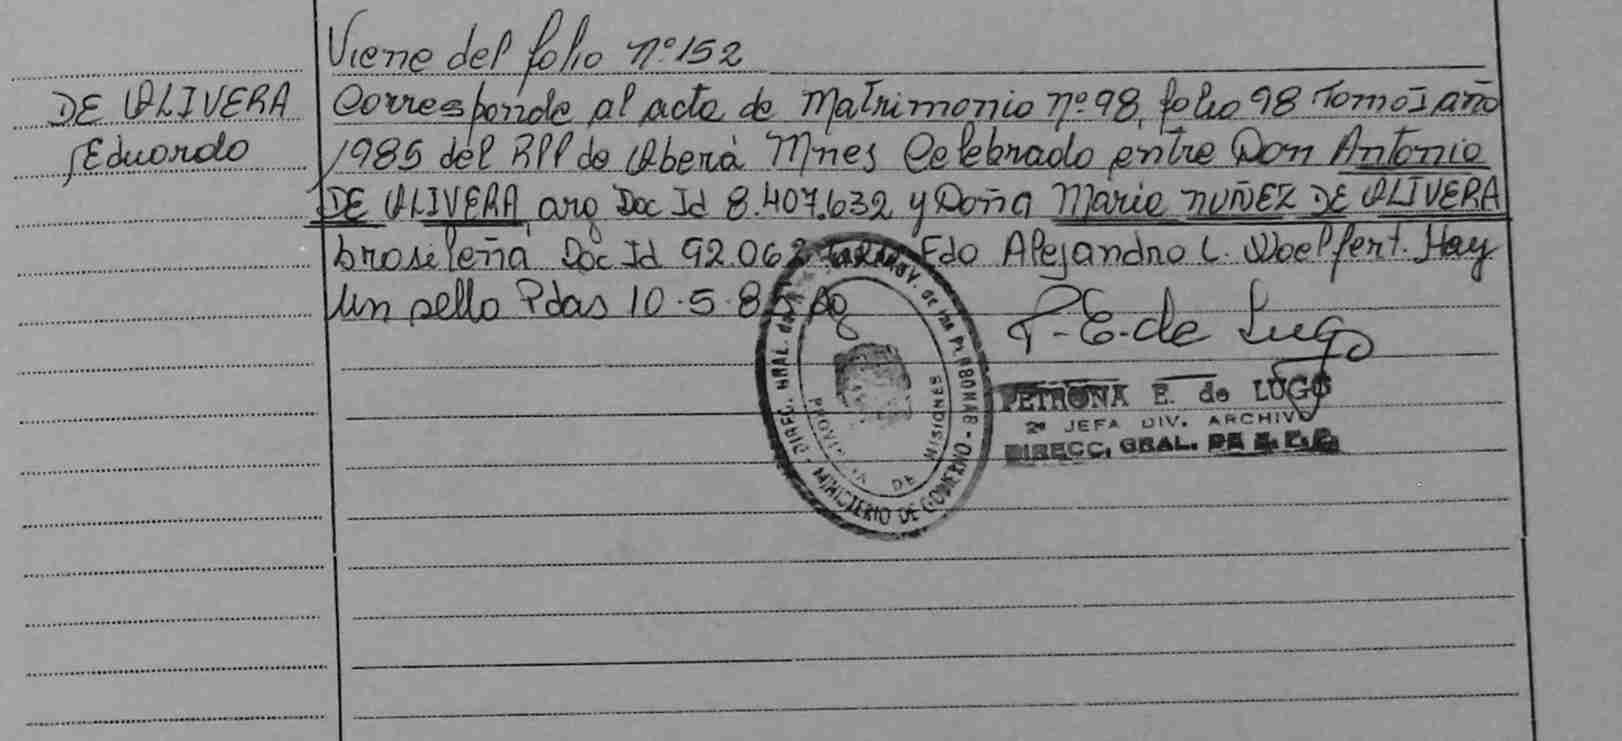 Viene del folio nº 152
DE OLIVERA
Eduardo
Corresponde al acta de Matrimonio nº 98, folio 98 Tomo I año
1985 del RPP de Oberá Mnes Celebrado entre Don Antonio
DE OLIVERA, arg Doc Id 8.407.632 y Doña Maria NUÑEZ DE OLIVERA
brasileña Doc Id 92.062 Fdo Alejandro C. Woelfert. Hay
un sello Pdas 10.5.85
P. E. de Lugo
PETRONA E. de LUGO
2ª JEFA DIV. ARCHIVO
DIRECC. GRAL. DE
DIREC. GRAL. de las PERSONAS
MINISTERIO DE GOBIERNO
PROVINCIA DE MISIONES